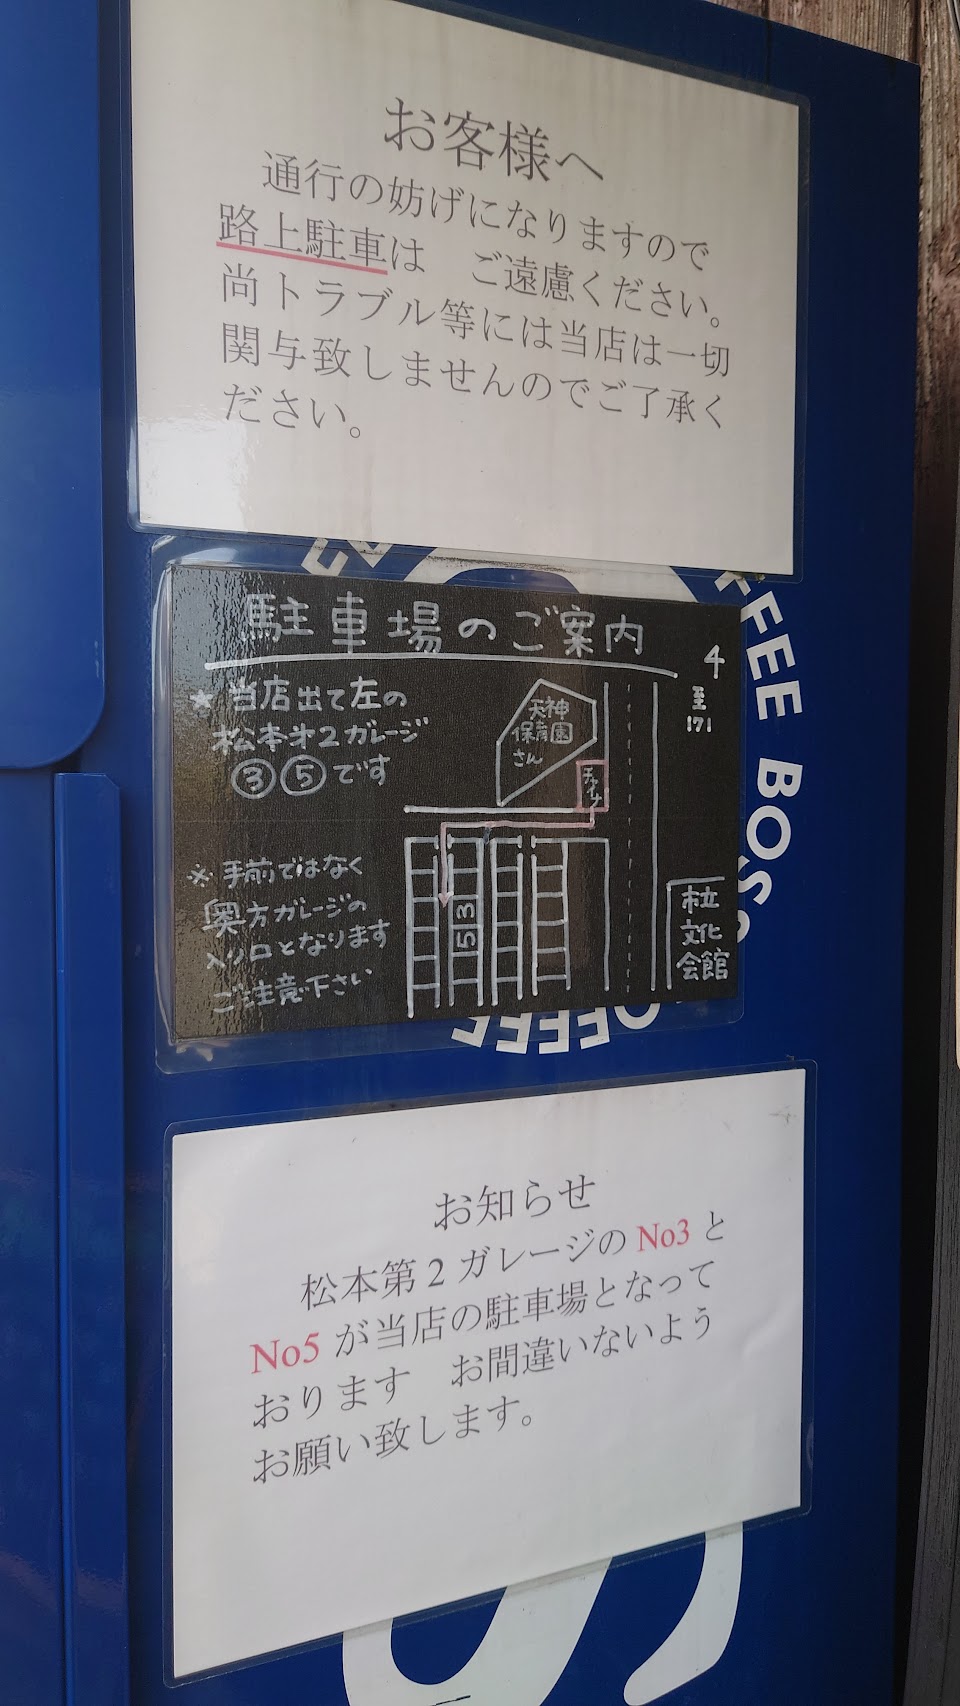 お客様へ
通行の妨げになりますので
路上駐車は　ご遠慮ください。
尚トラブル等には当店は一切
関与致しませんのでご了承く
ださい。
駐車場のご案内
★当店出て左の
松本第2ガレージ
③⑤です
※手前ではなく
奥方ガレージの
入り口となります
ご注意下さい
4
至
171
天神
保育園
さん
チャイナ
53
市立
文化
会館
FFEE BOSS
OFFEE
お知らせ
松本第２ガレージの No3 と
No5 が当店の駐車場となって
おります　お間違いないよう
お願い致します。